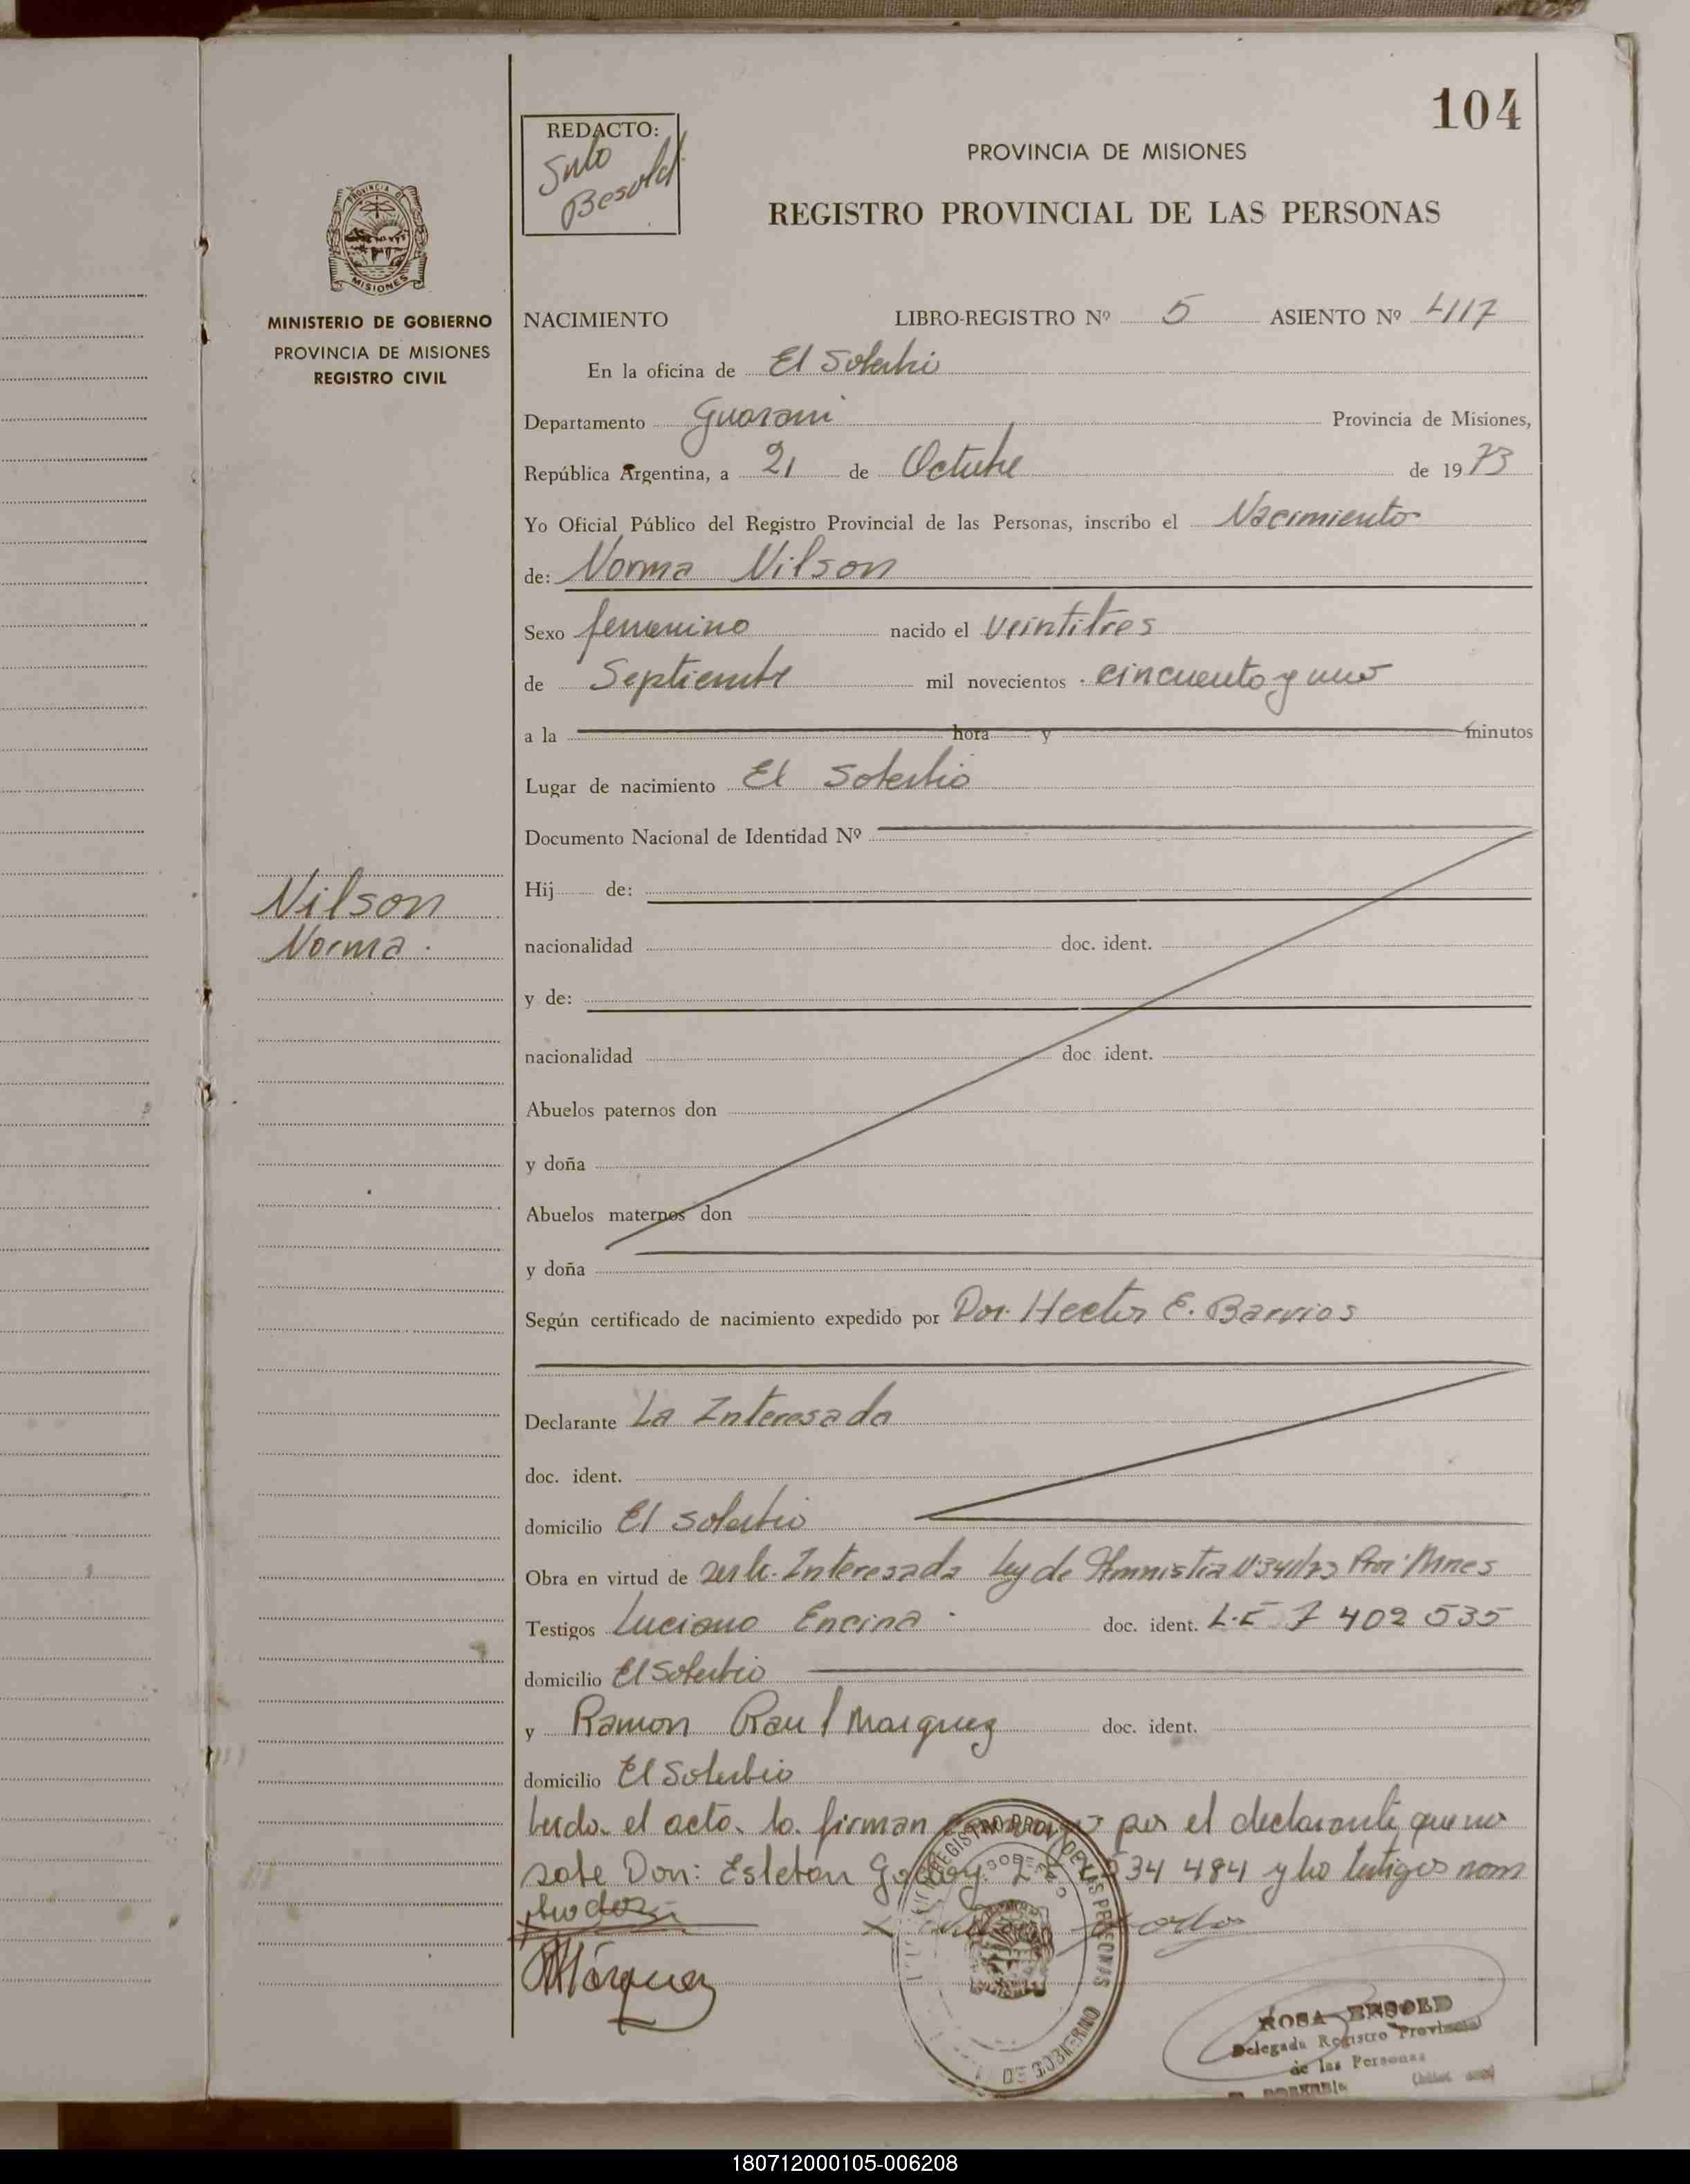 104
REDACTO:
Besold
PROVINCIA DE MISIONES
REGISTRO PROVINCIAL DE LAS PERSONAS
PROVINCIA DE
MISIONES
MINISTERIO DE GOBIERNO
PROVINCIA DE MISIONES
REGISTRO CIVIL
NACIMIENTO LIBRO-REGISTRO Nº 5 ASIENTO Nº 4117
En la oficina de El Soberbio
Departamento Guarani Provincia de Misiones,
República Argentina, a 21 de Octubre de 1973
Yo Oficial Público del Registro Provincial de las Personas, inscribo el Nacimiento
de: Norma Nilson
Sexo femenino nacido el Veintitres
de Septiembre mil novecientos cincuenta y uno
a la hora y minutos
Lugar de nacimiento El Soberbio
Documento Nacional de Identidad Nº
Nilson
Norma.
Hij de:
nacionalidad doc. ident.
y de:
nacionalidad doc ident.
Abuelos paternos don
y doña
Abuelos maternos don
y doña
Según certificado de nacimiento expedido por Dor. Hector E. Barrios
Declarante La Interesada
doc. ident.
domicilio El Soberbio
Obra en virtud de Interesada Ley de Amnistia Nº 341/73
Testigos Luciano Encina doc. ident. L.E 7 402 535
domicilio El Soberbio
y Ramon Raul Marquez doc. ident.
domicilio El Soberbio
leido el acto lo firman por el declarante que no
sabe Don: Esteban 34 484 y los testigos nom
brados
Márquez
ROSA BESOLD
Delegada Registro Provincial
de las Personas
180712000105-006208